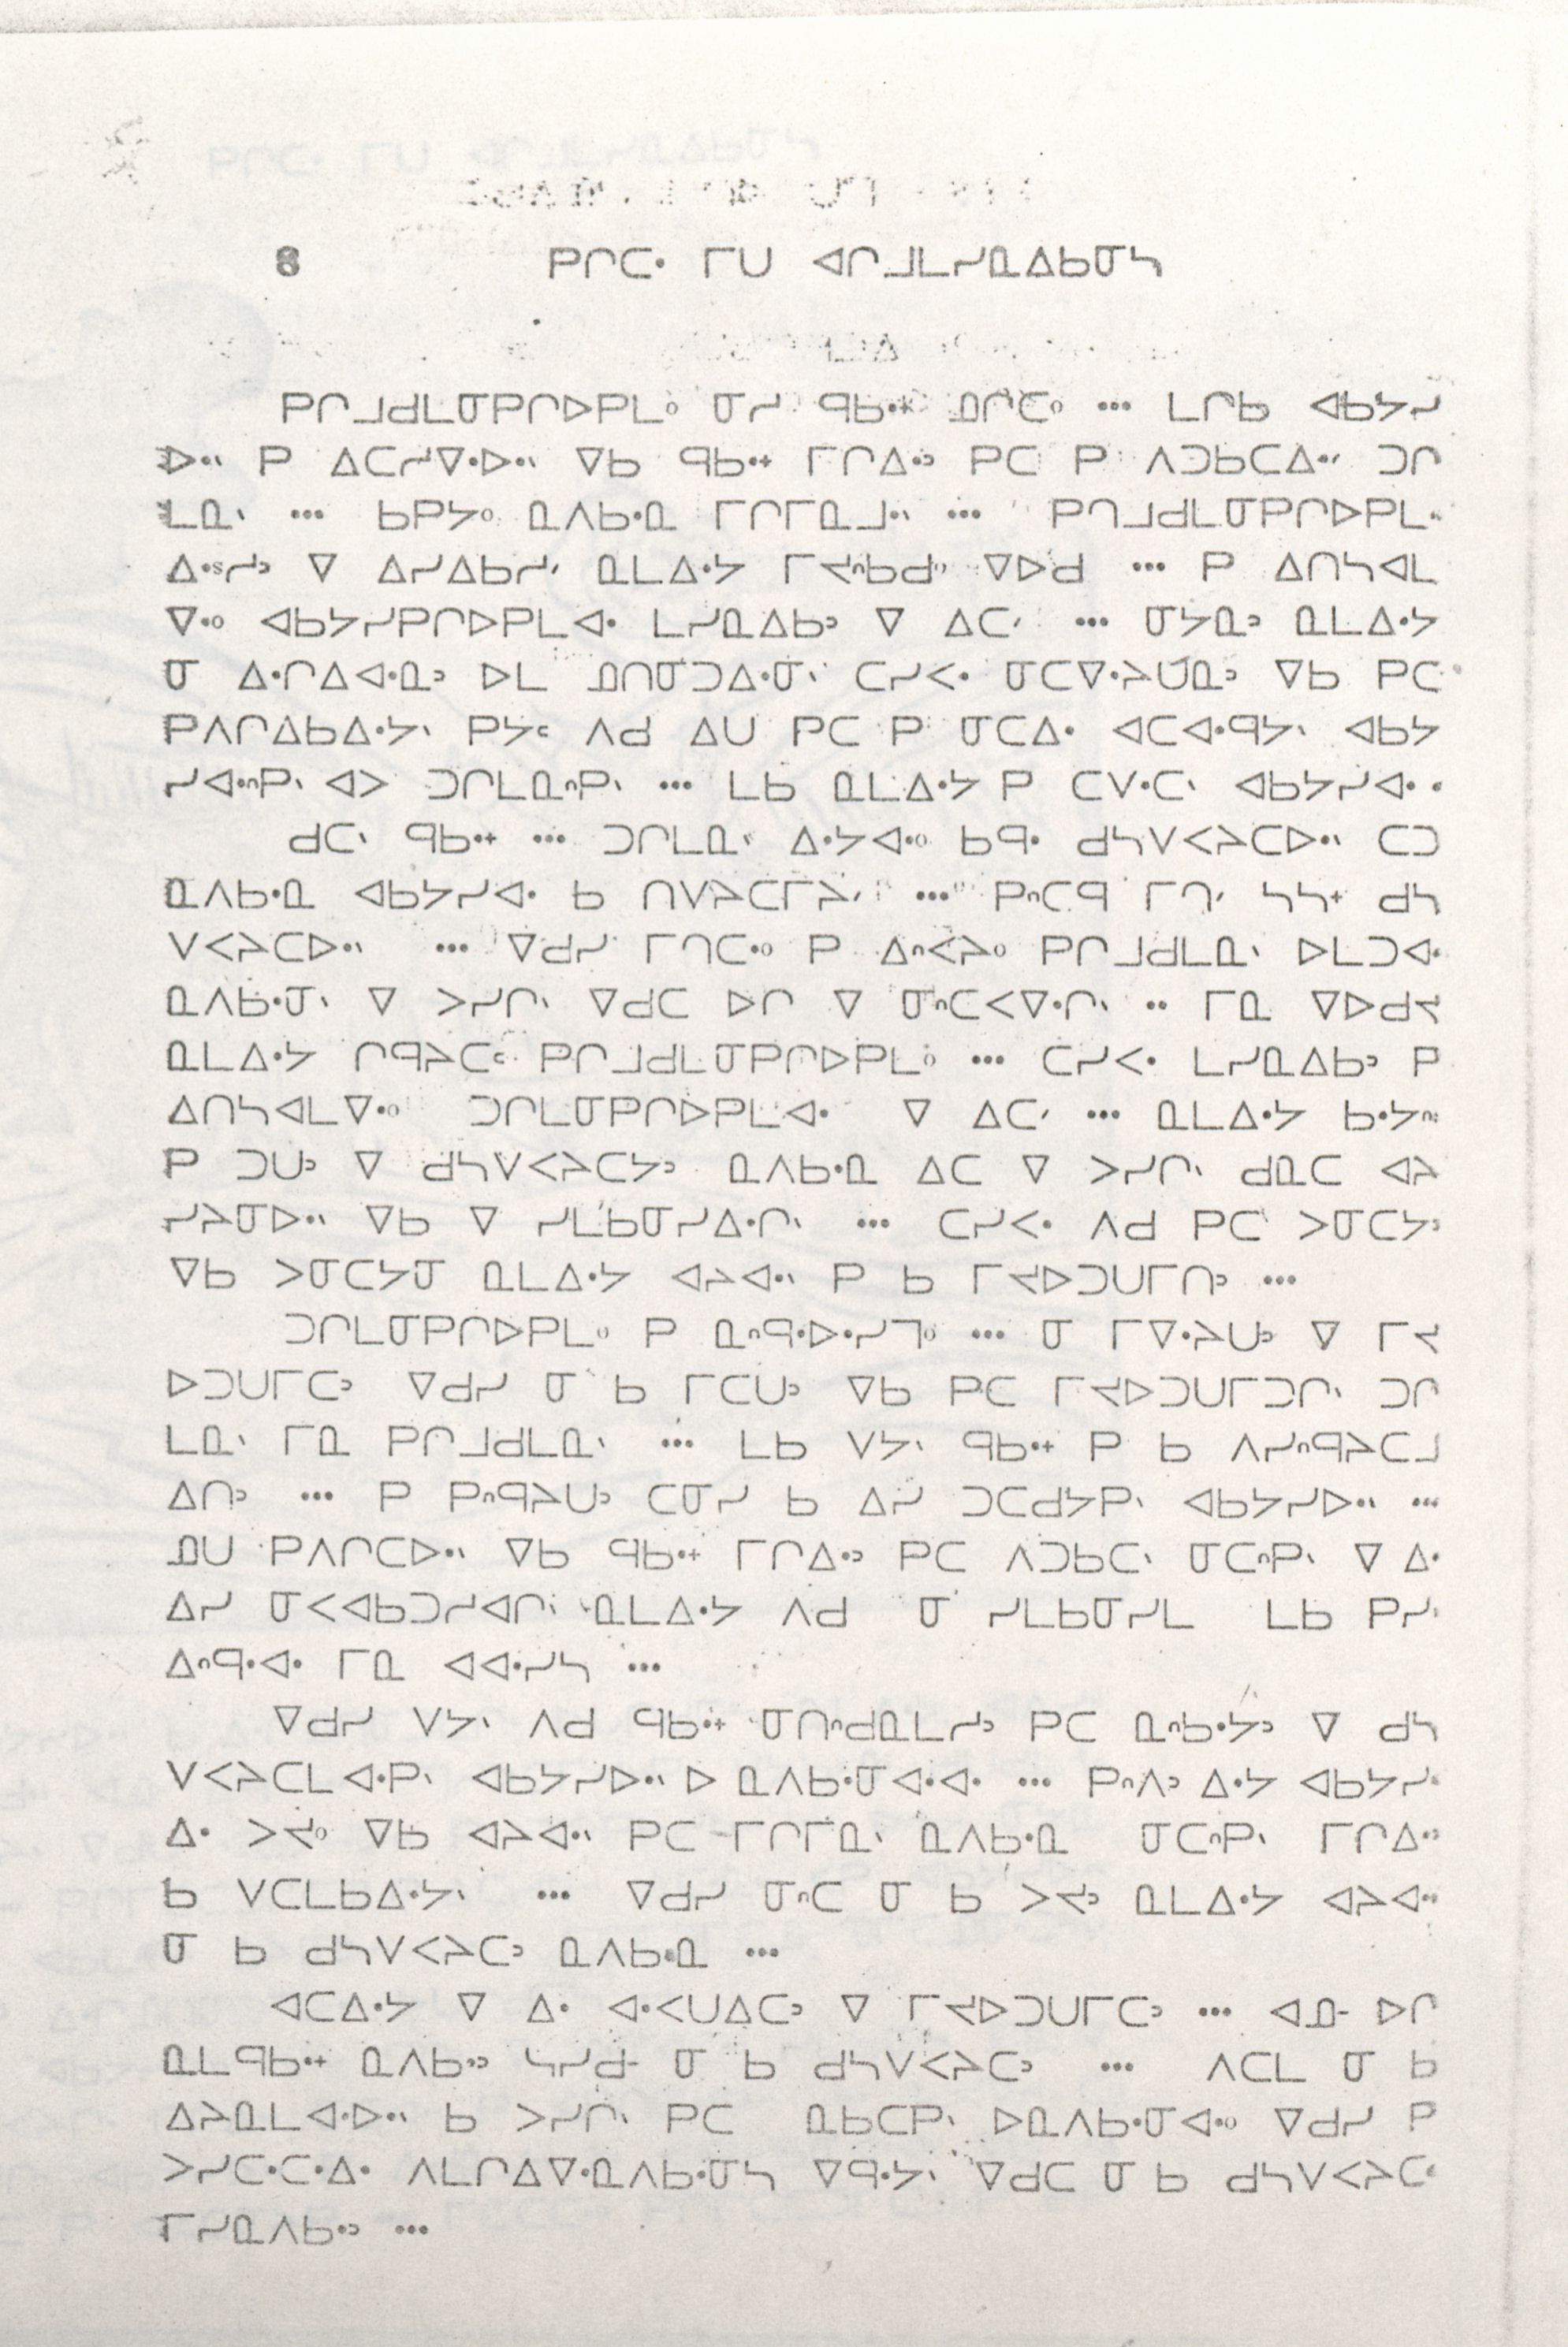 8 ᑭᒋᑕᐧ ᒥᑌ ᐊᒋᒧᒪᓯᓇᐃᑲᓂᓴ
ᑭᒋᒧᑯᒪᓂᑭᒋᐅᑭᒪᐤ ᓂᓯ ᑫᑲᐧᕀ ᓄᒋᑕᐤ ... ᒪᒋᑲ ᐊᑲᔭᓯ
ᐅᐧᐠ ᑭ ᐃᑕᓯᐁᐧᐅᐧᐠ ᐁᑲ ᑫᑲᐧᕀ ᒥᒋᐃᐧᐣ ᑭᑕ ᑭ ᐱᑐᑲᑕᐃᐧᐟ ᑐᒋ
ᒪᓇᐠ ... ᑲᑭᔭᐤ ᓇᐱᑲᐧᓇ ᒥᒋᒥᓇᒧᐧᐠ ... ᑭᒋᒧᑯᒪᓂᑭᒋᐅᑭᒪ
ᐃᐧᓯᐣ ᐁ ᐃᓯᐃᑲᓯᐟ ᓇᒪᐃᐧᔭ ᒥᔪᐢᑲᑯᐤ ᐁᐅᑯ ... ᑭ ᐃᑎᓴᐊᒪ
ᐁᐧᐤ ᐊᑲᔭᓯᑭᒋᐅᑭᒪᐊᐧ ᒪᓯᓇᐃᑲᐣ ᐁ ᐃᑕᐟ ... ᓂᔭᓇᐣ ᓇᒪᐃᐧᔭ
ᓂ ᐃᐧᒋᐃᐊᐧᓇᐣ ᐅᒪ ᓄᑎᓂᑐᐃᐧᓂᐠ ᑕᓯᐸᐧ ᓂᑕᐁᐧᔨᑌᓇᐣ ᐁᑲ ᑭᑕ
ᑭᐱᒋᐃᑲᐃᐧᔭᐠ ᑭᔭᒼ ᐱᑯ ᐃᑌ ᑭᑕ ᑭ ᓂᑕᐃᐧ ᐊᑕᐊᐧᑫᔭᐠ ᐊᑲᔭ
ᓯᐊᐧᐢᑭᐠ ᐊᐳ ᑐᒋᒪᓇᐢᑭᐠ ... ᒪᑲ ᓇᒪᐃᐧᔭ ᑭ ᑕᐯᐧᑕᐠ ᐊᑲᔭᓯᐊᐧ
ᑯᑕᐠ ᑫᑲᐧᕀ ... ᑐᒋᒪᓇᐠ ᐃᐧᔭᐊᐧᐤ ᑲᑫᐧ ᑯᓴᐯᐸᔨᑕᐅᐧᐠ ᑕᑐ
ᓇᐱᑲᐧᓇ ᐊᑲᔭᓯᐊᐧ ᑲ ᑎᐯᔨᑕᒥᔨᐟ ... ᑭᐢᑕᑫ ᒥᑎᐟ ᓴᓴᕀ ᑯᓴ
ᐯᐸᔨᑕᐅᐧᐠ ... ᐁᑯᓯ ᒥᑎᑕᐧᐤ ᑭ ᐃᐢᐸᔨᐤ ᑭᒋᒧᑯᒪᓇᐠ ᐅᒪᑐᐊᐧ
ᓇᐱᑲᐧᓂᐠ ᐁ ᐳᓯᒋᐠ ᐁᑯᑕ ᐅᒋ ᐁ ᓂᐢᑕᐸᐁᐧᒋᐠ .. ᒥᓇ ᐁᐅᑯᔪ
ᓇᒪᐃᐧᔭ ᒋᑫᔨᑕᒼ ᑭᒋᒧᑯᒪᓂᑭᒋᐅᑭᒪᐤ ... ᑕᓯᐸᐧ ᒪᓯᓇᐃᑲᐣ ᑭ
ᐃᑎᓴᐊᒪᐁᐧᐤ ᑐᒋᒪᓂᑭᒋᐅᑭᒪᐊᐧ ᐁ ᐃᑕᐟ ... ᓇᒪᐃᐧᔭ ᑲᐧᔭᐢ
ᑭ ᑐᑌᐣ ᐁ ᑯᓴᐯᐸᔨᑕᔭᐣ ᓇᐱᑲᐧᓇ ᐃᑕ ᐁ ᐳᓯᒋᐠ ᑯᓇᑕ ᐊᔨ
ᓯᔨᓂᐅᐧᐠ ᐁᑲ ᐁ ᓯᒪᑲᓂᓯᐃᐧᒋᐠ ... ᑕᓯᐸᐧ ᐱᑯ ᑭᑕ ᐳᓂᑕᔭᐣ
ᐁᑲ ᐳᓂᑕᔭᓂ ᓇᒪᐃᐧᔭ ᐊᔨᐊᐧᐠ ᑭ ᑲ ᒥᔪᐅᑐᑌᒥᑎᐣ ...
ᑐᒋᒪᓂᑭᒋᐅᑭᒪᐤ ᑭ ᓇᐢᑫᐧᐅᐧᓯᒧᐤ ... ᓂ ᒥᐁᐧᔨᑌᐣ ᐁ ᒥᔪ
ᐅᑐᑌᒥᑕᐣ ᐁᑯᓯ ᓂ ᑲ ᒥᑕᑌᐣ ᐁᑲ ᑭᑕ ᒥᔪᐅᑐᑌᒥᑐᒋᐠ ᑐᒋ
ᒪᓇᐠ ᒥᓇ ᑭᒋᒧᑯᒪᓇᐠ ... ᒪᑲ ᐯᔭᐠ ᑫᑲᐧᕀ ᑭ ᑲ ᐱᓯᐢᑫᔨᑕᒧ
ᐃᑎᐣ ... ᑭ ᑭᐢᑫᔨᑌᐣ ᑕᓂᓯ ᑲ ᐃᓯ ᑐᑕᑯᔭᑭᐠ ᐊᑲᔭᓯᐅᐧᐠ ...
ᓄᑌ ᑭᐱᒋᑕᐅᐧᐠ ᐁᑲ ᑫᑲᐧᕀ ᒥᒋᐃᐧᐣ ᑭᑕ ᐱᑐᑲᑕᐠ ᓂᑕᐢᑭᐠ ᐁ ᐃᐧ
ᐃᓯ ᓂᐸᐊᑲᑐᓯᐊᒋᐠ ᓇᒪᐃᐧᔭ ᐱᑯ ᓂ ᓯᒪᑲᓂᓯᒪ ᒪᑲ ᑭᓯᐠ
ᐃᐢᑫᐧᐊᐧ ᒥᓇ ᐊᐊᐧᓯᓴ ...
ᐁᑯᓯ ᐯᔭᐠ ᐱᑯ ᑫᑲᐧᕀ ᓂᑎᐢᑯᓇᒪᓯᐣ ᑭᑕ ᓇᐢᑲᐧᔭᐣ ᐁ ᑯᓴ
ᐯᐸᔨᑕᒪᐊᐧᑭᐠ ᐊᑲᔭᓯᐅᐧᐠ ᐅ ᓇᐱᑲᐧᓂᐊᐧᐊᐧ ... ᑭᐢᐱᐣ ᐃᐧᔭ ᐊᑲᔭᓯ
ᐃᐧ ᐳᔪᐤ ᐁᑲ ᐊᔨᐊᐧᐠ ᑭᑕ ᒥᒋᒥᓇᐠ ᓇᐱᑲᐧᓇ ᓂᑕᐢᑭᐠ ᒥᒋᐃᐧᐣ
ᑲ ᐯᑕᒪᑲᐃᐧᔭᐠ ... ᐁᑯᓯ ᓂᐢᑕ ᓂ ᑲ ᐳᔪᐣ ᓇᒪᐃᐧᔭ ᐊᔨᐊᐧᐠ
ᓂ ᑲ ᑯᓴᐯᐸᔨᑕᐣ ᓇᐱᑲᐧᓇ ...
ᐊᑕᐃᐧᔭ ᐁ ᐃᐧ ᐊᐧᐸᑌᐃᑕᐣ ᐁ ᒥᔪᐅᑐᑌᒥᑕᐣ ... ᐊᓄᐨ ᐅᒋ
ᓇᒪᑫᑲᐧᕀ ᓇᐱᑲᐧᐣ ᓴᓯᑯᐨ ᓂ ᑲ ᑯᓴᐯᐸᔨᑕᐣ ... ᐱᑕᒪ ᓂ ᑲ
ᐃᔨᓇᒪᐊᐧᐅᐧᐠ ᑲ ᐳᓯᒋᐠ ᑭᑕ ᓇᑲᑕᑭᐠ ᐅᓇᐱᑲᐧᓂᐊᐧᐤ ᐁᑯᓯ ᑭ
ᐳᓯᑕᐧᑕᐧᐃᐧ ᐱᒪᒋᐃᐁᐧᓇᐱᑲᐧᓂᓴ ᐁᑫᐧᔭᐠ ᐁᑯᑕ ᓂ ᑲ ᑯᓴᐯᐸᔨᑕᐣ
ᒥᓯᓇᐱᑲᐧᐣ ...